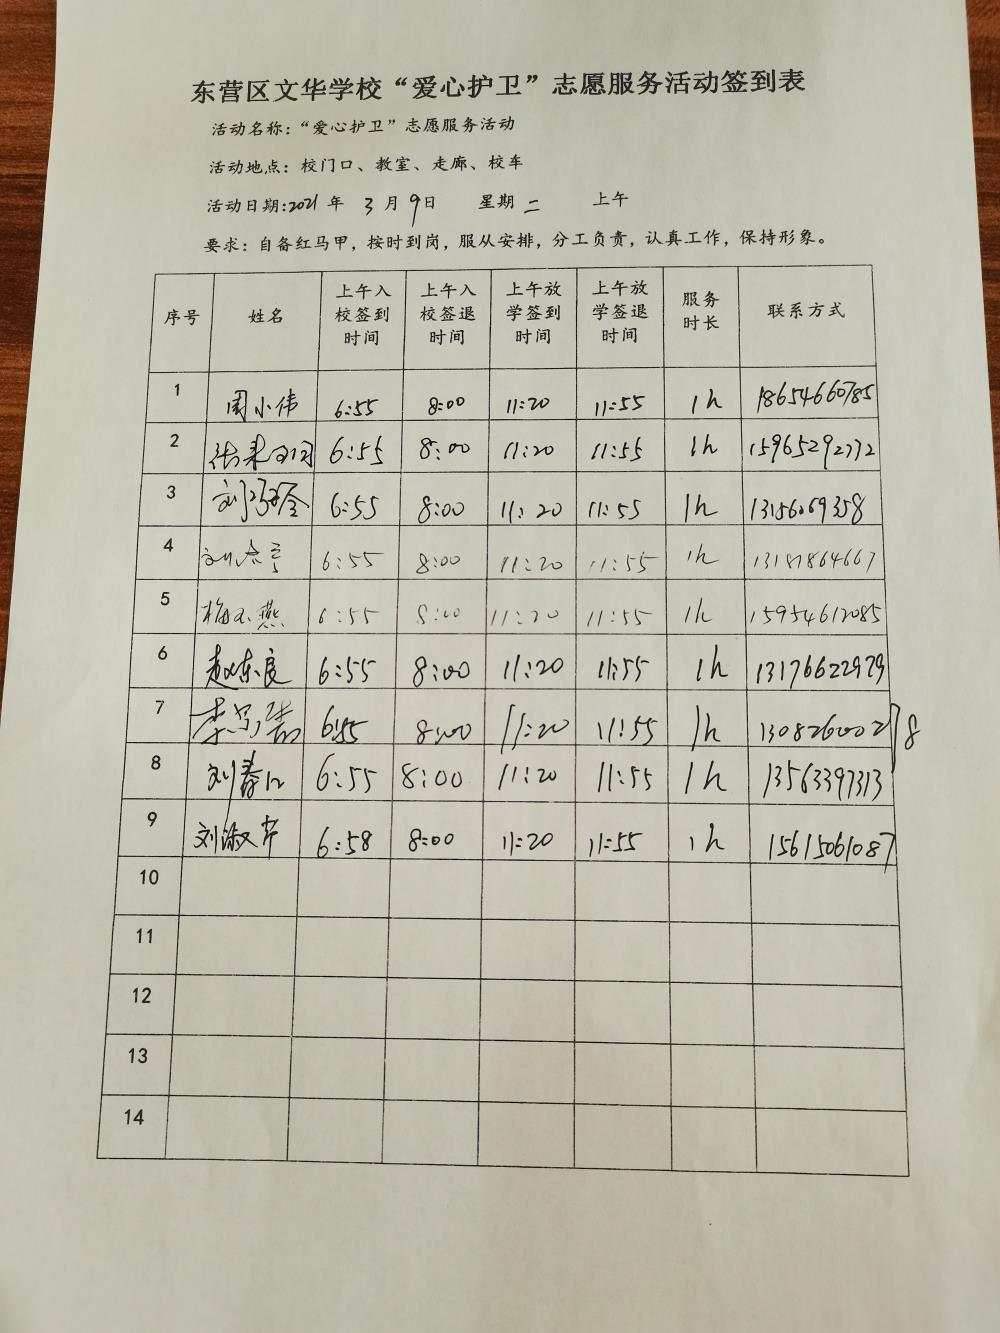 东营区文华学校“爱心护卫”志愿服务活动签到表
活动名称:“爱心护卫”志愿服务活动
活动地点:校门口、教室、走廊、校车
活动日期:2021年 3月9日 星期二 上午
要求:自备红马甲,按时到岗,服从安排,分工负责,认真工作,保持形象。
序号 姓名 上午入校签到时间 上午入校签退时间 上午放学签到时间 上午放学签退时间 服务时长 联系方式
1 周小伟 6:55 8:00 11:20 11:55 1h 18654660785
2 6:55 8:00 11:20 11:55 1h 15965292772
3 6:55 8:00 11:20 11:55 1h 13156069358
4 6:55 8:00 11:20 11:55 1h
5 6:55 8:00 11:20 11:55 1h 15954612085
6 赵东良 6:55 8:00 11:20 11:55 1h 13176622979
7 6:55 8:00 11:20 11:55 1h 13082600278
8 6:55 8:00 11:20 11:55 1h 13563397313
9 刘淑芹 6:58 8:00 11:20 11:55 1h 15615061087
10
11
12
13
14